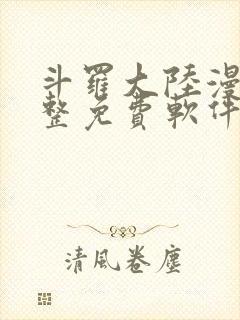 斗羅大陸漫
整免費軟件
清風卷塵